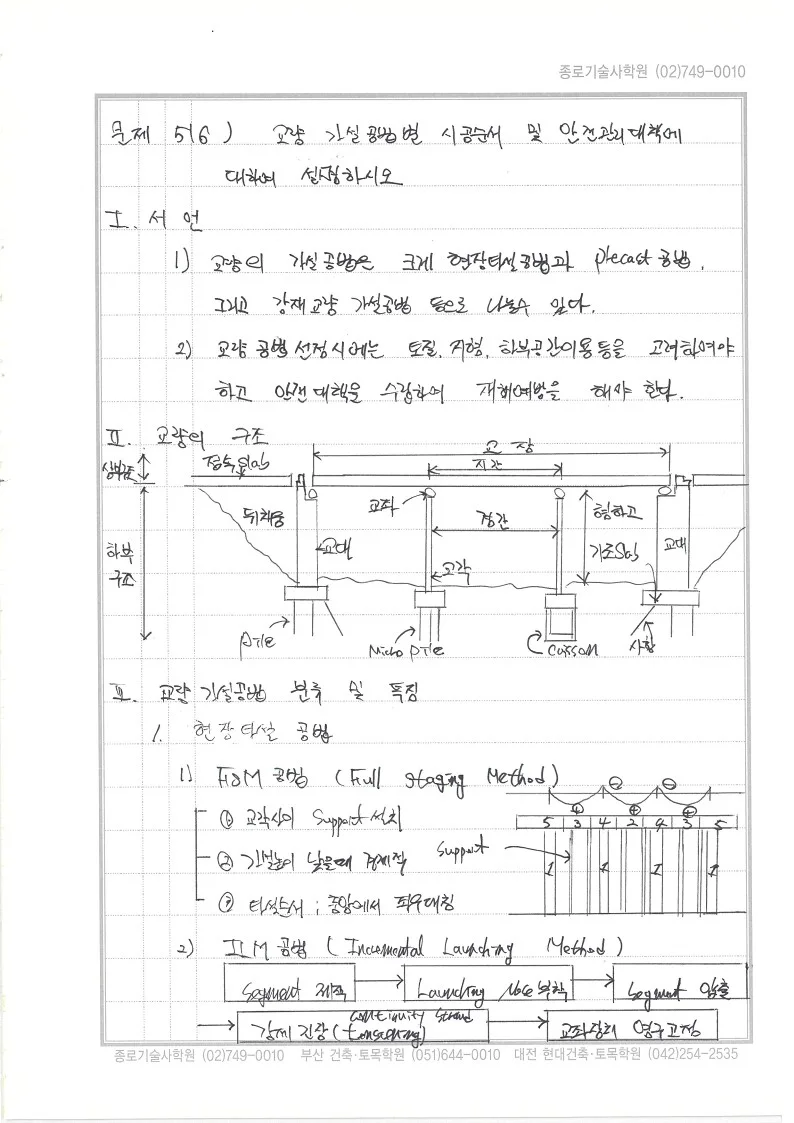 종로기술사학원 (02)749-0010
문제 5(6) 교량 가설공법별 시공순서 및 안전관리대책에
대하여 설명하시오
I. 서 언
1) 교량의 가설공법은 크게 현장타설공법과 precast 공법,
그리고 강재교량 가설공법 등으로 나눌수 있다.
2) 교량 공법 선정시에는 토질, 지형, 하부공간이용등을 고려하여야
하고 안전대책을 수립하여 재해예방을 해야 한다.
II. 교량의 구조
교 장
상부구조
접속slab
지간
뒤채움
교좌
형하고
경간
교대
기초Slab
교대
하부
구조
교각
pile
Micro pile
Caisson
사항
III. 교량 가설공법 분류 및 특징
1. 현장타설 공법
1) FSM 공법 (Full staging Method)
⊖ ⊖
⊕ ⊕ ⊕
① 교각사이 Support 설치
5 3 4 2 4 3 5
② 간설높이 낮을때 경제적
Support
1 1 1 1
③ 타설순서 ; 중앙에서 좌우대칭
2) ILM 공법 (Incremental Launching Method)
Segment 제작
Launching Nose 부착
Segment 압출
강재 긴장 (continuity strand tensioning)
교좌장치 영구고정
종로기술사학원 (02)749-0010 부산 건축·토목학원 (051)644-0010 대전 현대건축·토목학원 (042)254-2535